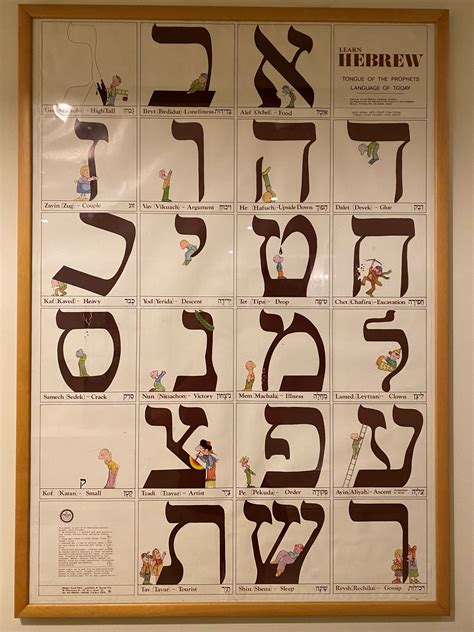 LEARN
HEBREW
TONGUE OF THE PROPHETS
LANGUAGE OF TODAY
א
Alef (Ochel) - Food אוכל
ב
Beyt (Bedidut)-Loneliness בדידות
ג
High(Tall גבוה
ד
Dalet (Devek) - Glue דבק
ה
He (Hafuch)-Upside Down הפוך
ו
Vav (Vikuach) - Argument ויכוח
ז
Zayin (Zug) - Couple זוג
ח
Chet (Chafira)-Excavation חפירה
ט
Tet (Tipa) - Drop טיפה
י
Yod (Yerida) - Descent ירידה
כ
Kaf (Kaved) - Heavy כבד
ל
Lamed (Leytzan) - Clown ליצן
מ
Mem (Machala) - Illness מחלה
נ
Nun (Nitzachon) - Victory ניצחון
ס
Samech (Sedek) - Crack סדק
ע
Ayin (Aliyah) - Ascent עליה
פ
Pe (Pekuda) - Order פקודה
צ
Tzadi (Tzayar) - Artist צייר
ק
Kof (Katan) - Small קטן
ר
Reysh (Rechilut) - Gossip רכילות
ש
Shin (Shena) - Sleep שינה
ת
Tav (Tayar) - Tourist תייר